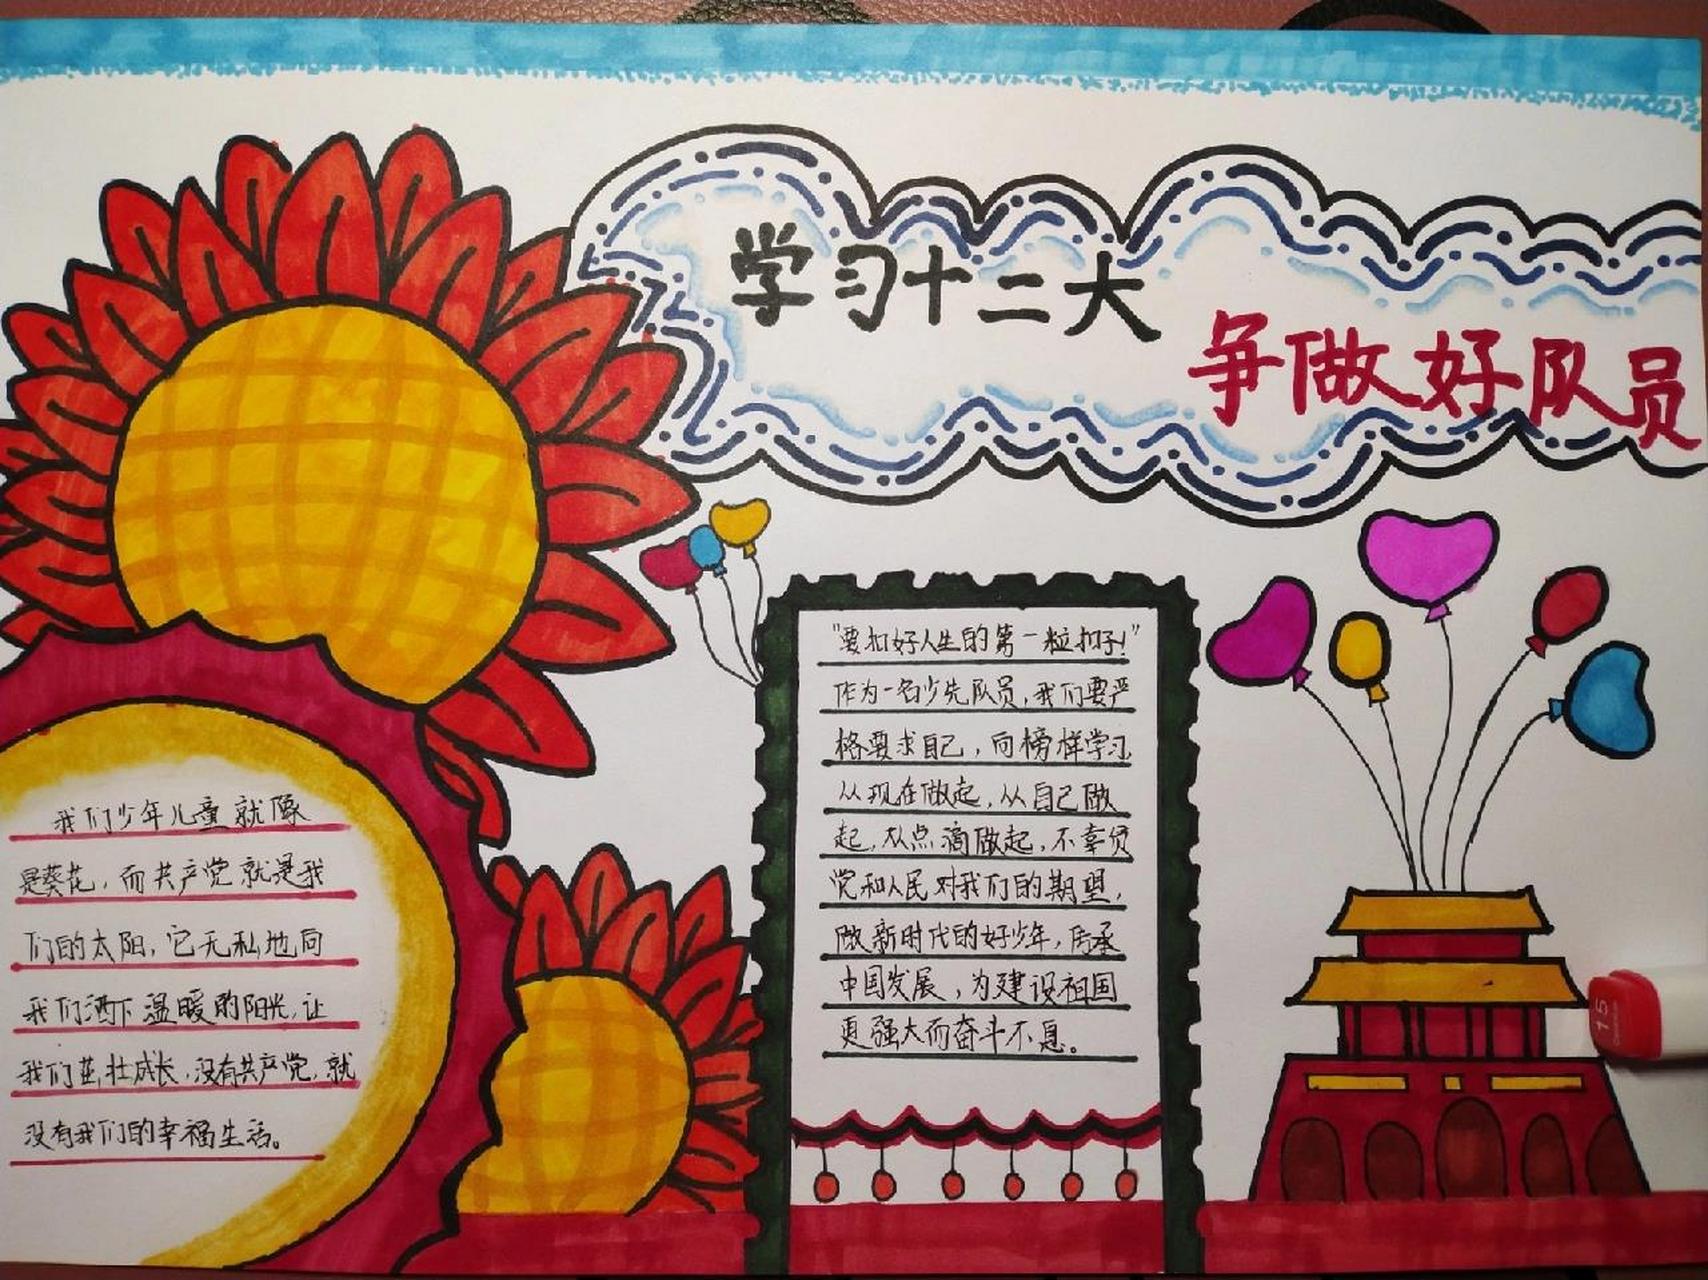 学习十二大
争做好队员
"要扣好人生的第一粒扣子!"
作为一名少先队员,我们要严
格要求自己,向榜样学习,
从现在做起,从自己做
起,从点滴做起,不辜负
党和人民对我们的期望,
做新时代的好少年,传承
中国发展,为建设祖国
更强大而奋斗不息。
我们少年儿童就像
是葵花,而共产党就是我
们的太阳,它无私地向
我们洒下温暖的阳光,让
我们茁壮成长,没有共产党,就
没有我们的幸福生活。
15